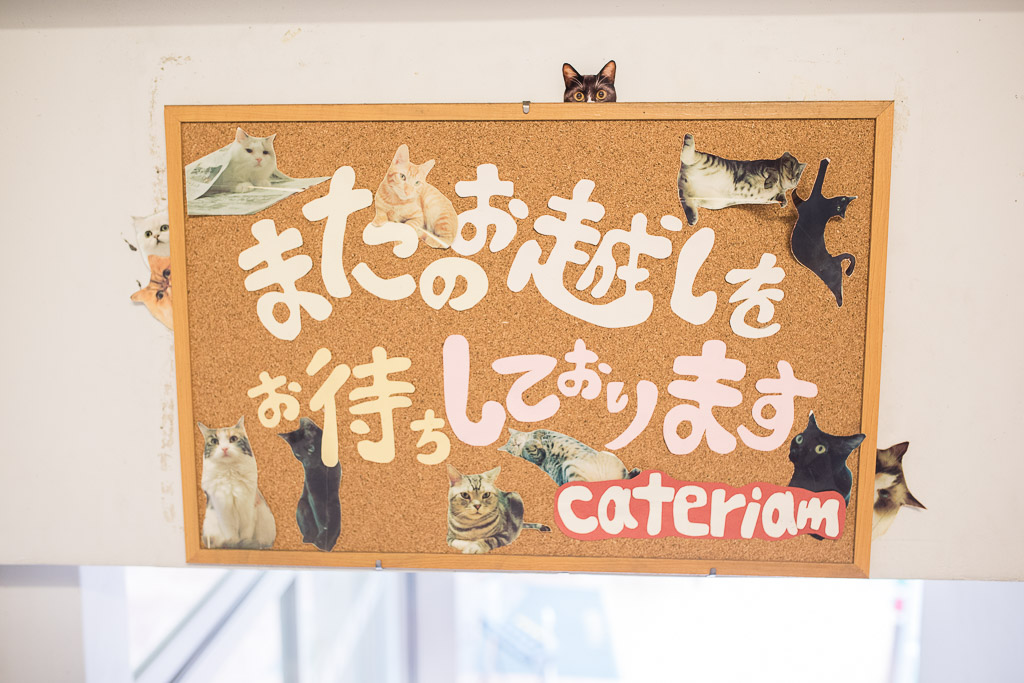 またのお越しを
お待ちしております
cateriam